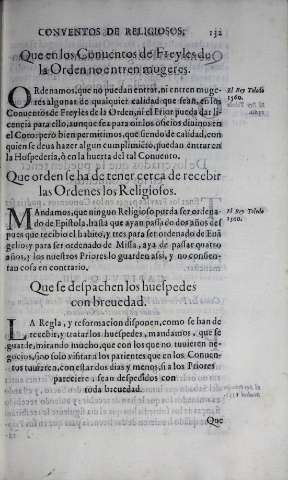 CONVENTOS DE RELIGIOSOS, 132
Que en los Conuentos de Freyles de
la Orden no entren mugeres.
ORdenamos, que no puedan entrar, ni entren muge-
res algunas de qualquier calidad que sean, en los
Conuentos de Freyles de la Orden, ni el Prior pueda dar li-
cencia para ello, aunque sea para oir los oficios diuinos en
el Coro: pero bien permitimos, que siendo de calidad, con
quien se deua hazer algun cumplimiẽto, puedan entrar en
la Hospederia, ò en la huerta del tal Conuento.
El Rey Toledo
1560.
Que orden se ha de tener cerca de recebir
las Ordenes los Religiosos.
MAndamos, que ningun Religioso pueda ser ordena-
do de Epistola, hasta que ayan passado dos años des
pues que recibio el habito, y tres para ser ordenado de Euã
gelio: y para ser ordenado de Missa, aya de passar quatro
años, y los nuestros Priores lo guarden assi, y no consien-
tan cosa en contrario.
El Rey Toledo
1560.
Que se despachen los huespedes
con breuedad.
LA Regla, y reformacion disponen, como se han de
recebir, y tratar los huespedes, mandamos, que se
guarde, mirando mucho, que con los que no tuuieren ne-
gocios, sino solo visitar a los parientes que en los Conuen-
tos tuuierẽ, con estar dos dias y menos, si a los Priores
pareciere, sean despedidos con
toda breuedad.
Que